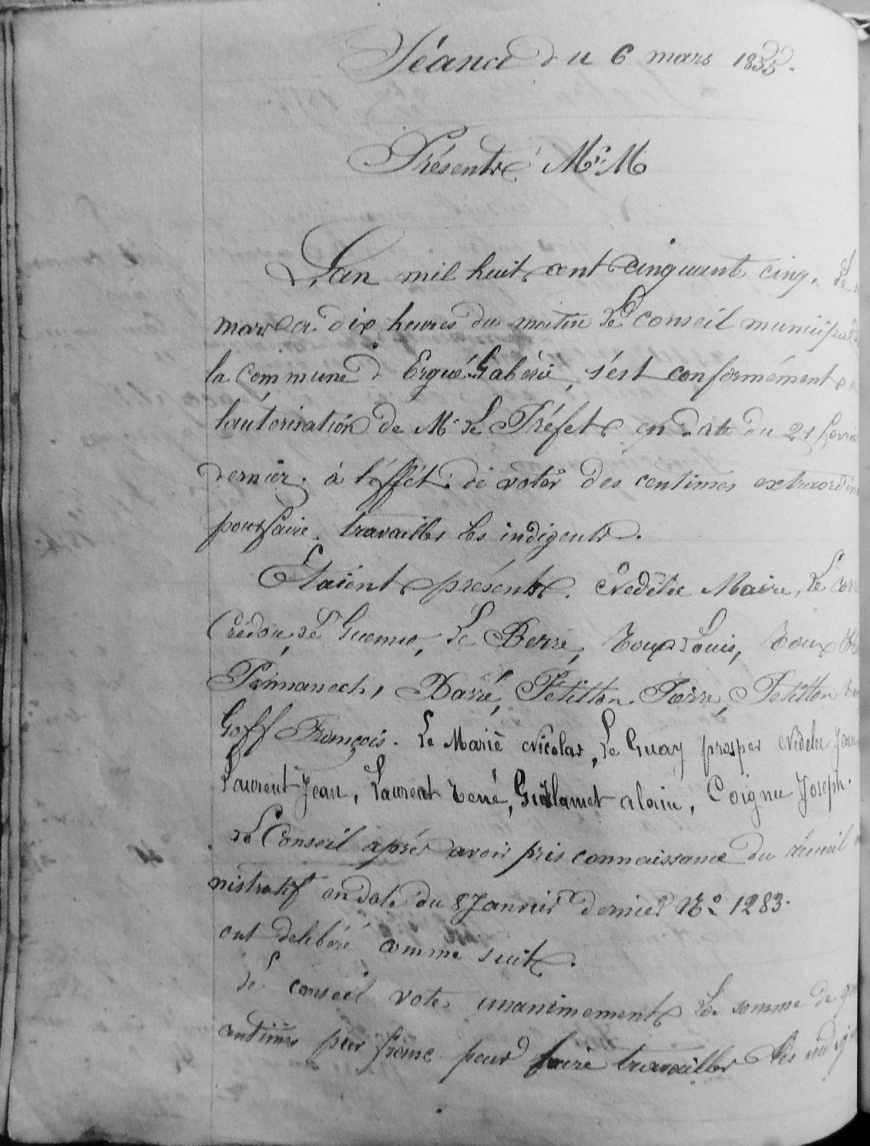 Séance du 6 mars 1855.
Présents M.M
L'an mil huit cent cinquante cinq. Le
mars à dix heures du matin Le conseil municipal
la Commune d'Ergué-Gabéric, s'est conformément
l'autorisation de Mr Le Préfet en date du 21 fevrier
dernier. à l'éffét de votér des centimes extraordin
pour faire travailler les indigents.
Etaient présents. Nédélec Maire, Le
Crédou, Le Guenno, Le Berre, Roux Louis, Roux
Pennanech, Barré, Pétillon Pierre, Pétillon
Goff François. Le Marié Nicolas, Le Guay prosper Nédélec Jean
Laurent Jean, Laurent René, Guillamet alain, Coignec Joseph.
Le Conseil aprés avoir pris connaissance du récueil
nistratif en date du 8 Janvier dernier No 1283.
ont deliberé comme suit.
Le conseil vote unanimement la somme de
centimes par franc pour faire travailler les indig